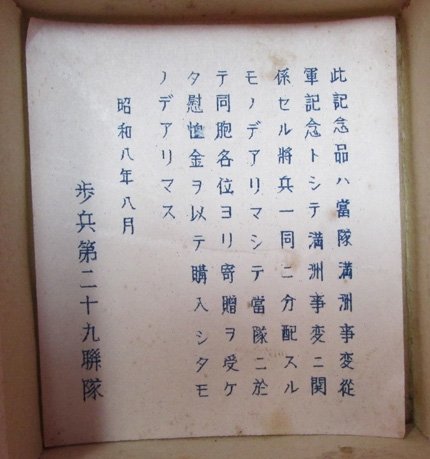 此記念品ハ當隊満洲事変從
軍記念トシテ満洲事変ニ関
係セル將兵一同ニ分配スル
モノデアリマシテ當隊ニ於
テ同胞各位ヨリ寄贈ヲ受ケ
タ慰恤金ヲ以テ購入シタモ
ノデアリマス
昭和八年八月
歩兵第二十九聯隊